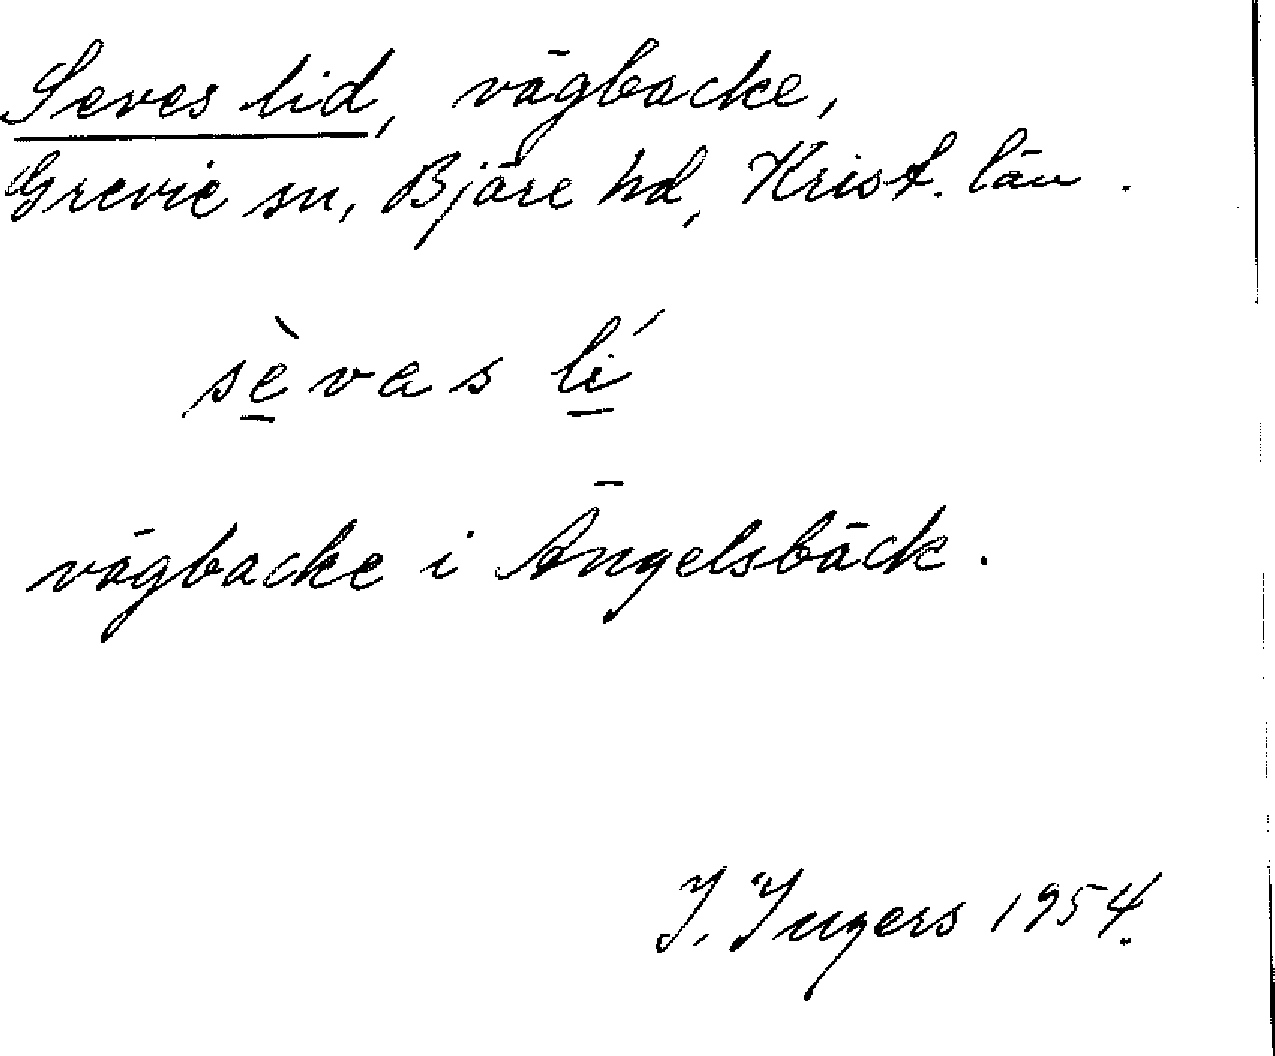 Seves lid, vägbacke,
Grevie sn, Bjäre hd, Krist. län.
sè̠vas lí̠
vägbacke i Ängelsbäck.
I. Ingers 1954.